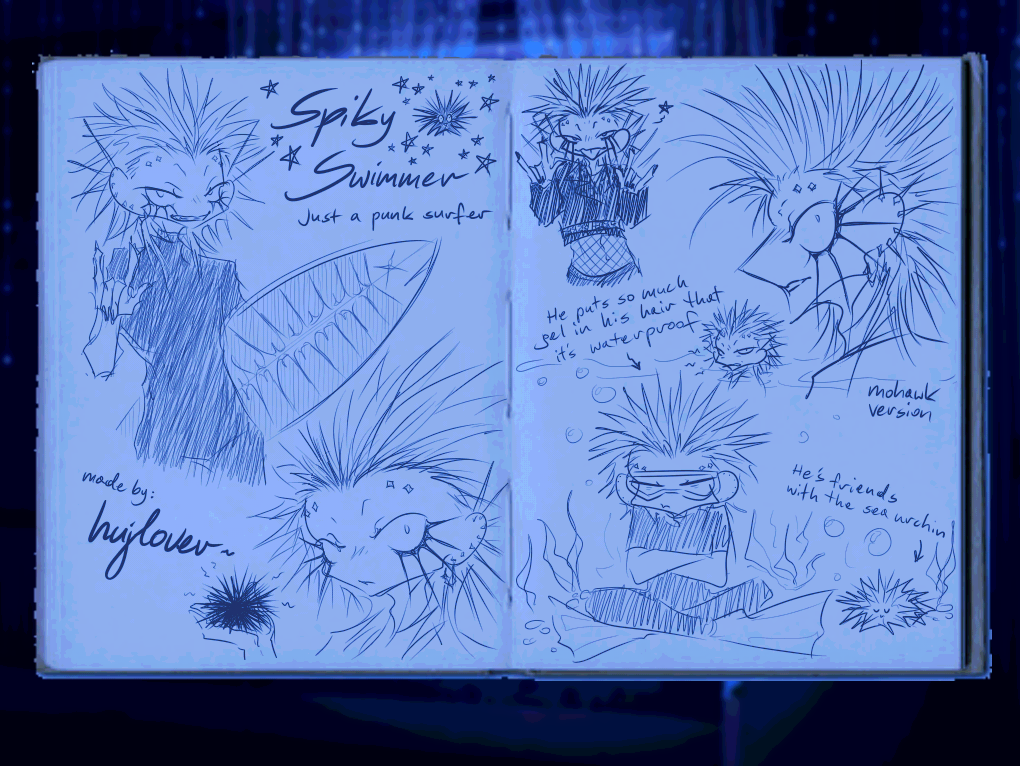 Spiky
Swimmer
just a punk surfer
made by:
hujlover~
He puts so much
gel in his hair that
it's waterproof
mohawk
version
He's friends
with the sea urchin!